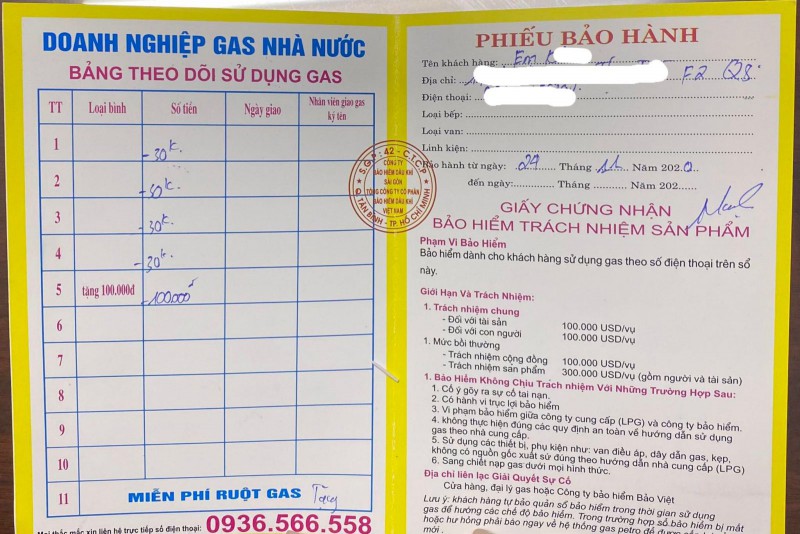 DOANH NGHIỆP GAS NHÀ NƯỚC
BẢNG THEO DÕI SỬ DỤNG GAS
TT Loại bình Số tiền Ngày giao Nhân viên giao gas ký tên
1 - 30k.
2 - 30k.
3 - 30k.
4 - 30k.
5 tặng 100.000đ - 100.000đ
6
7
8
9
10
11 MIỄN PHÍ RUỘT GAS Tặng
Mọi thắc mắc xin liên hệ trực tiếp số điện thoại: 0936.566.558
S.G.P : 42 - C.T.C.P
CÔNG TY
BẢO HIỂM DẦU KHÍ
SÀI GÒN
TỔNG CÔNG TY CỔ PHẦN
BẢO HIỂM DẦU KHÍ
VIỆT NAM
Q. TÂN BÌNH - TP. HỒ CHÍ MINH
PHIẾU BẢO HÀNH
Tên khách hàng: Em
Địa chỉ: F2 Q8.
Điện thoại:
Loại bếp:
Loại van:
Linh kiện:
Bảo hành từ ngày: 29 Tháng 11 Năm 2020
đến ngày: Tháng Năm 202
GIẤY CHỨNG NHẬN
BẢO HIỂM TRÁCH NHIỆM SẢN PHẨM
Phạm Vi Bảo Hiểm
Bảo hiểm dành cho khách hàng sử dụng gas theo số điện thoại trên sổ
này.
Giới Hạn Và Trách Nhiệm:
1. Trách nhiệm chung
- Đối với tài sản 100.000 USD/vụ
- Đối với con người 100.000 USD/vụ
1. Mức bồi thường
- Trách nhiệm cộng đồng 100.000 USD/vụ
- Trách nhiệm sản phẩm 300.000 USD/vụ (gồm người và tài sản)
1. Bảo Hiểm Không Chịu Trách nhiệm Với Những Trường Hợp Sau:
1. Cố ý gõy ra sự cố tai nạn.
2. Có hành vi trục lợi bảo hiểm
3. Vi phạm bảo hiểm giữa công ty cung cấp (LPG) và công ty bảo hiểm.
4. không thực hiện đúng các quy định an toàn về hướng dẫn sử dụng
gas theo nhà cung cấp.
5. Sử dụng các thiết bị, phụ kiện như: van điều áp, dây dẫn gas, kẹp,
không có nguồn gốc xuất sứ đúng theo hướng dẫn nhà cung cấp (LPG)
6. Sang chiết nạp gas dưới mọi hình thức.
Địa chỉ liên lạc Giải Quyết Sự Cố
Cửa hàng, đại lý gas hoặc Công ty bảo hiểm Bảo Việt
Lưu ý: khách hàng tự bảo quản sổ bảo hiểm trong thời gian sử dụng
gas để hưởng các chế độ bảo hiểm. Trong trường hợp sổ bảo hiểm bị mất
hoặc hư hỏng phải báo ngay về hệ thống gas petro để được
mới .